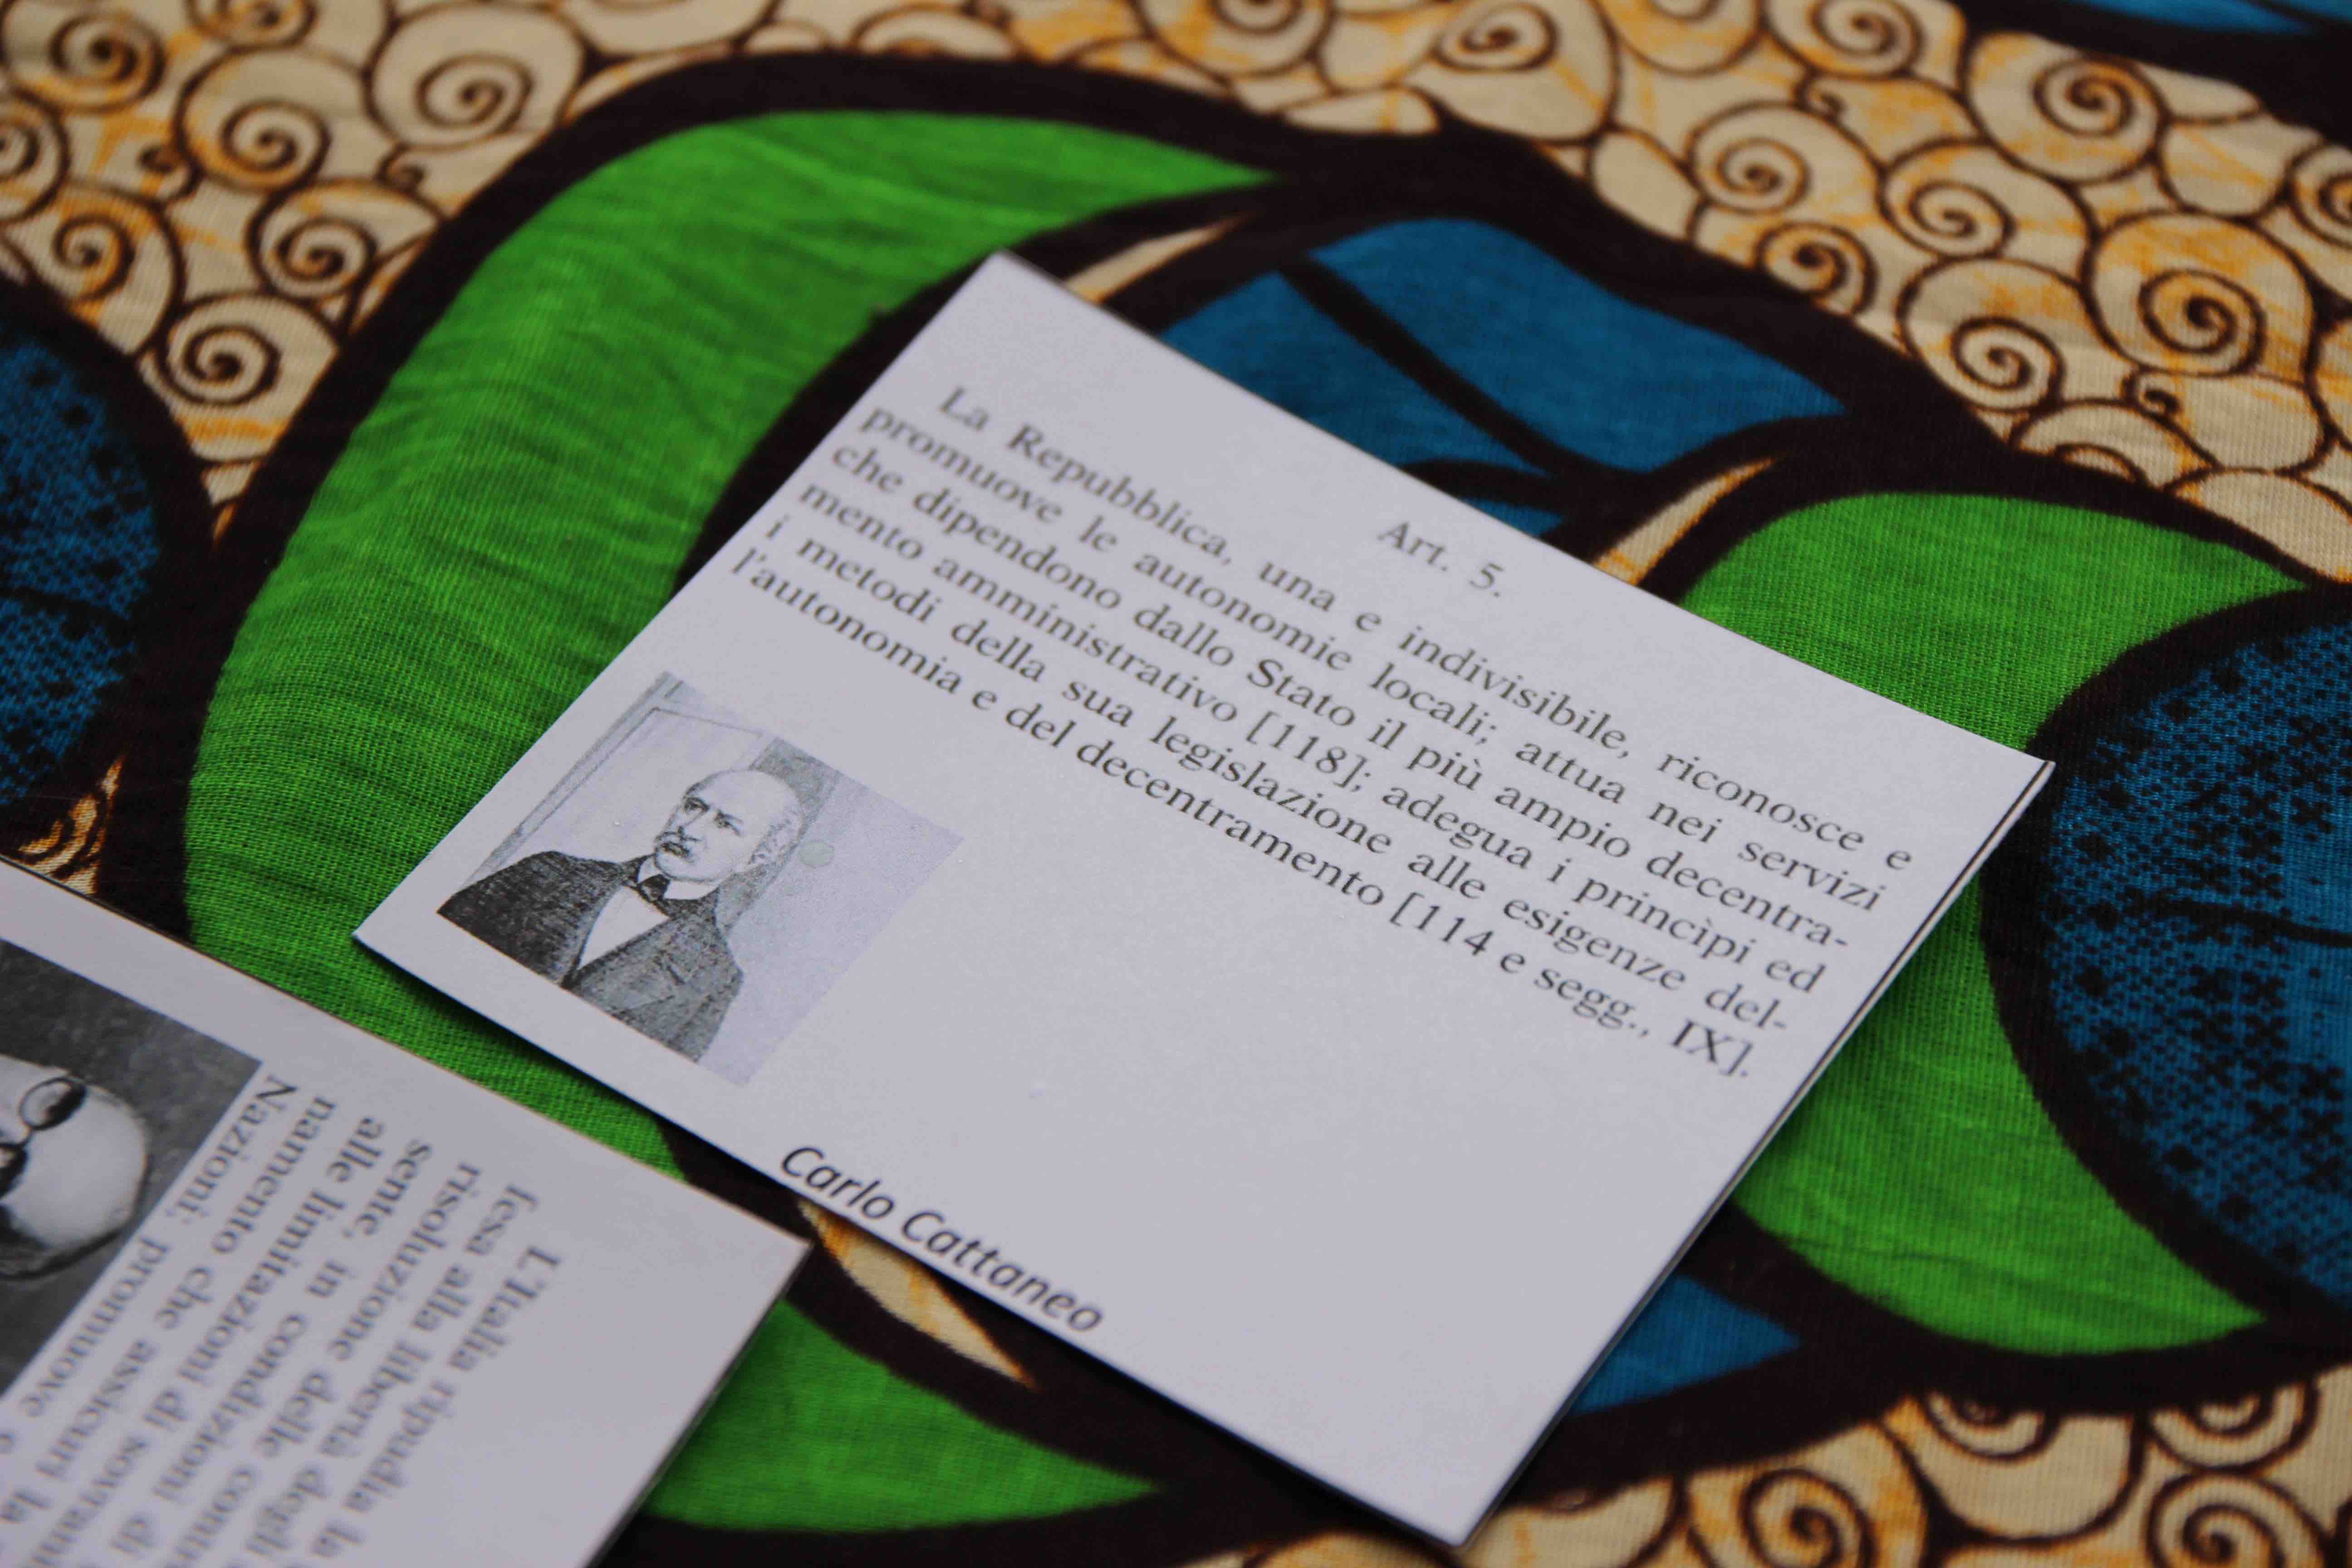 Art. 5.
La Repubblica, una e indivisibile, riconosce e
promuove le autonomie locali; attua nei servizi
che dipendono dallo Stato il più ampio decentra-
mento amministrativo [118]; adegua i princìpi ed
i metodi della sua legislazione alle esigenze del-
l'autonomia e del decentramento [114 e segg., IX].
Carlo Cattaneo
L'Italia ripudia la
fesa alla libertà degli
risoluzione delle
sente, in condizioni di
alle limitazioni di
namento che assicuri la
Nazioni; promuove